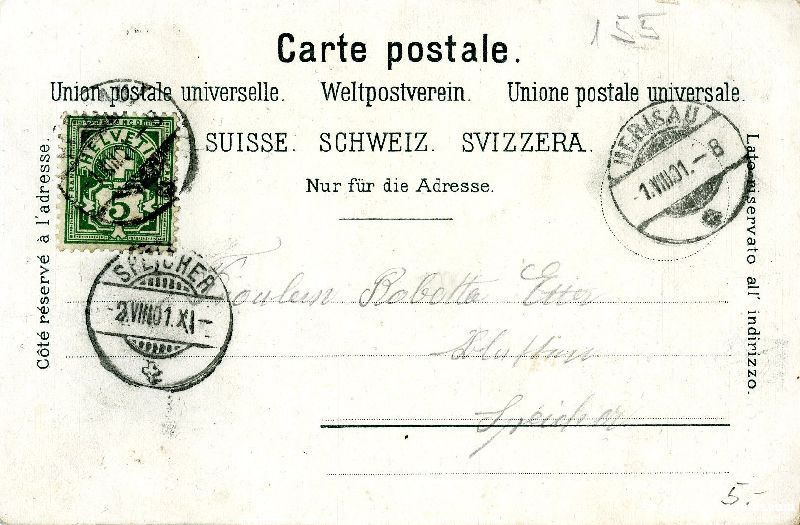 155
Carte postale.
Union postale universelle. Weltpostverein. Unione postale universale.
SUISSE. SCHWEIZ. SVIZZERA.
Nur für die Adresse.
Côté réservé à l'adresse.
Lato riservato all' indirizzo.
HELVETIA
5
HERISAU
-1.VIII.01.-8
SPEICHER
-2.VIII.01.XI-
Fräulein Robetta Etter
Speicher
5.-